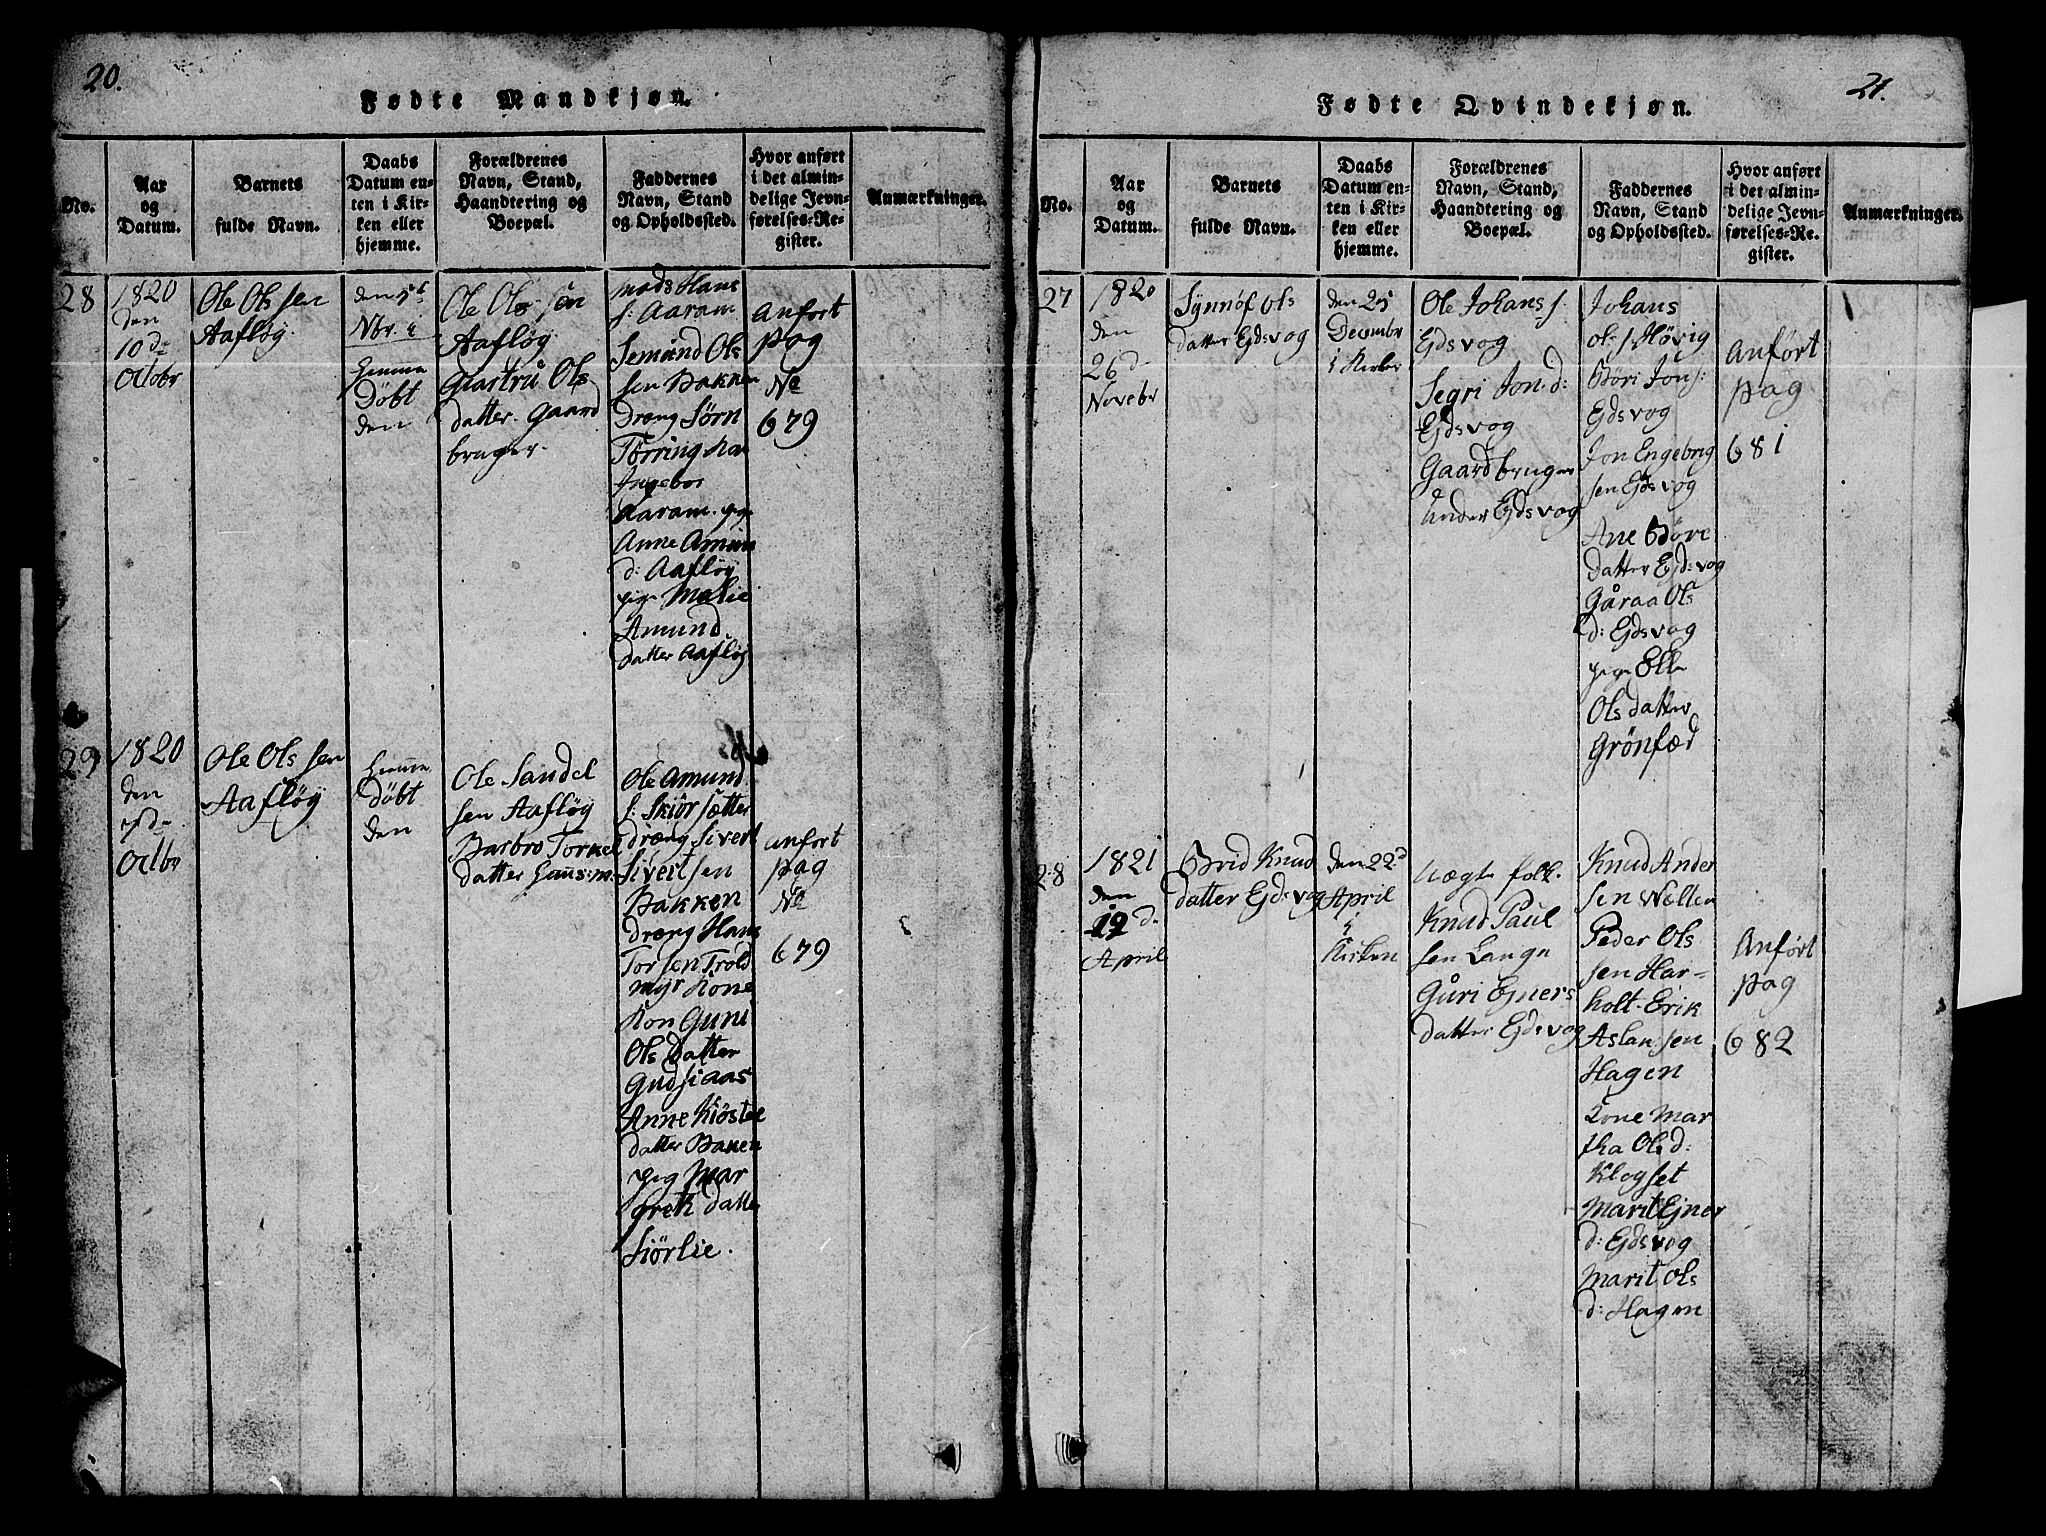 20.
Fødte Mandkjøn.
No.
Aar
og
Datum.
Barnets
fulde Navn.
Daabs
Datum en-
ten i Kir-
ken eller
hjemme.
Forældrenes
Navn, Stand,
Haandtering og
Boepæl.
Faddernes
Navn, Stand
og Opholdssted.
Hvor anført
i det almin-
delige Jevn-
førelses-Re-
gister.
Anmærkninger.
28
1820
den
10 d-
Octobr
Ole Ols sen
Aafløy
den 5t
Nbr. i
Hjemme
Døbt
den
Ole Ols sen
Aafløy
Ols
datter. Gaard
bruger.
Mads Hans
s: Aaram
Semund Ols
sen Bakken
Dreng Sørn
Tørring
Ingebor
Aaram. pige
Anne Amun
d: Aafløy
pige Malie
Amund
datter Aafløy
Anfort
pag
No
679
29
1820
den
Octbr
Ole Ols sen
Aafløy
Hjemme
Døbt
den
Ole Sandel
sen Aafløy
Barbro Torkel
datter Huus:m:
Ole Amund
s: Skiør sætter
dræng Sivert
Sivert sen
Bakken
dræng Hans
Tor sen Trold
myr Kone
Kon Guni
Ols datter
Gudsiaas
Anne Kiøstel
datter Baken
pig Mar
greth datte
Siörlie.
anfort
pag
No
679
21.
Fødte Qvindekjøn.
No.
Aar
og
Datum.
Barnets
fulde Navn.
Daabs
Datum en-
ten i Kir-
ken eller
hjemme.
Forældrenes
Navn, Stand,
Haandtering og
Boepæl.
Faddernes
Navn, Stand
og Opholdssted.
Hvor anført
i det almin-
delige Jevn-
førelses-Re-
gister.
Anmærkninger.
27
1820
den
26 d-
Novebr
Synnøf Ols
datter Ejdsvog
den 25
Decembr
i Kirken
Ole Johans s.
Ejdsvog
Segri Jon. d:
Ejdsvog
Gaardbruger
under Ejdsvog
Johans
ol. s. Høvig
Børi Jon s:
Ejdsvog
Jon Engebrig
sen Ejdsvog
Ane Børe
datter Ejd:vog
Gåraa Ols
d: Ejdsvog
pige Elle
Ols datter
Grönfæd
Anført
pag
681
28
1821
den
19 d-
April
Brid Knud
datter Ejdsvog
den 22d
April
i
Kirken
Ægte folk.
Knud Paul
sen Lange
Guri Ejners
datter Ejdsvog
Knud Ander
sen Wælten
Peder Ols
sen Har-
holt. Erik
Aslan sen
Hagen
Kone Mar
tha Ols d:
Klogset
Marit Ejner
d: Ejdsvog
Marit Ols
d: Hagen
Anført
pag
682